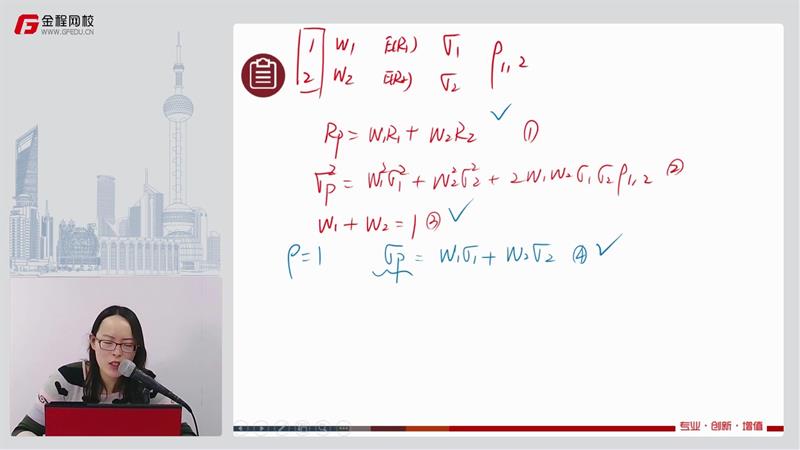 金程网校
WWW.GFEDU.CN
1 W₁ E(R₁) σ₁
2 W₂ E(R₂) σ₂ ρ₁,₂
Rp = W₁R₁ + W₂R₂ ✓ ①
σp² = W₁²σ₁² + W₂²σ₂² + 2W₁W₂σ₁σ₂ρ₁,₂ ②
W₁ + W₂ = 1 ③ ✓
ρ = 1 σp = W₁σ₁ + W₂σ₂ ④ ✓
专业·创新·增值